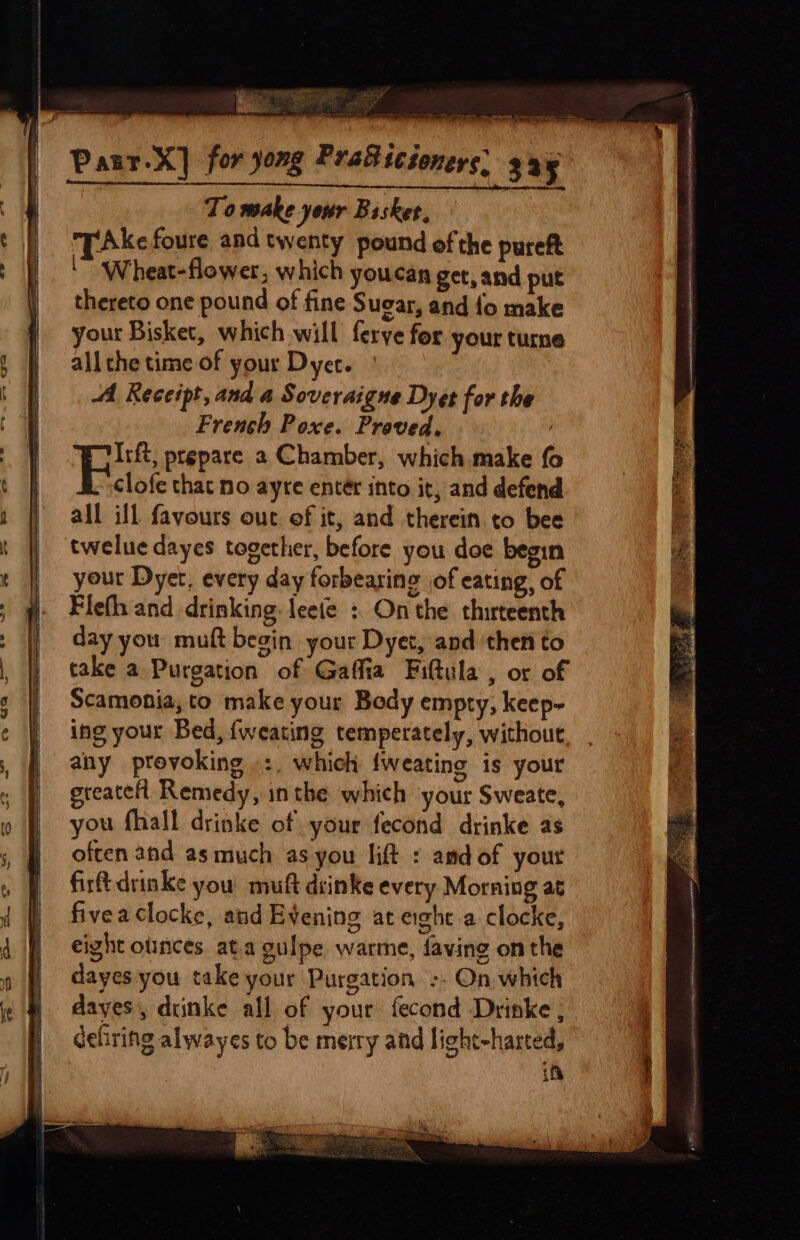 Part.X] for yong Practicioners, 325
To make your Bisket.
TAke foure and twenty pound of the pureſt
Wheat-flower, which you can get, and put
thereto one pound of fine Sugar, and ſo make
your Bisket, which will ſerve for your turne
all the time of your Dyet.
A Receipt, and a Soveraigne Dyet for the
French Poxe. Proved.
FIrſt, prepare a Chamber, which make ſo
cloſe that no ayre enter into it, and defend
all ill ſavours out of it, and therein to bee
twelue dayes together, before you doe begin
your Dyet, every day forbearing of eating, of
Fleſh and drinking leeſe : On the thirteenth
day you muſt begin your Dyet, and then to
take a Purgation of Gaſſia Fiſtula , or of
Scamonia, to make your Body empty, keep-
ing your Bed, ſweating temperately, without
any provoking : which ſweating is your
greateſt Remedy, in the which your Sweate,
you ſhall drinke of your ſecond drinke as
often and as much as you liſt : and of your
firſt drinke you muſt drinke every Morning at
five a clocke, and Evening at eight a clocke,
eight ounces at a gulpe warme, ſaving on the
dayes you take your Purgation : On which
dayes, drinke all of your ſecond Drinke,
deſiring alwayes to be merry and light-harted,
in